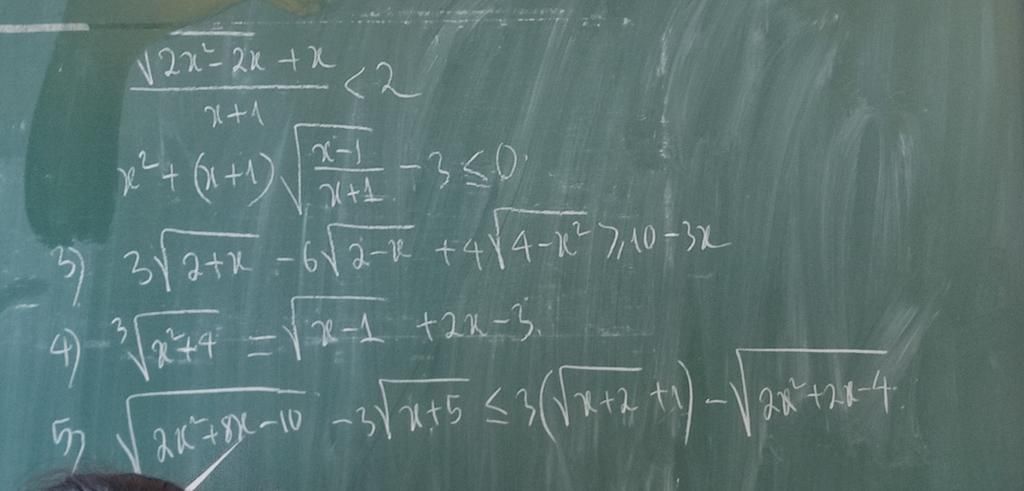 (√(2x²-2x) + x)/(x+1) < 2
x² + (x+1)√((x-1)/(x+1)) - 3 ≤ 0
3) 3√(2+x) - 6√(2-x) + 4√(4-x²) ⩾ 10 - 3x
4) ³√(x²+4) = √(x-1) + 2x - 3.
5) √(2x²+8x-10) - 3√(x+5) ≤ 3(√(x+2) + 1) - √(2x²+2x-4)